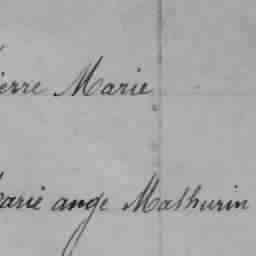 ierre Marie
Marie ange Mathurin